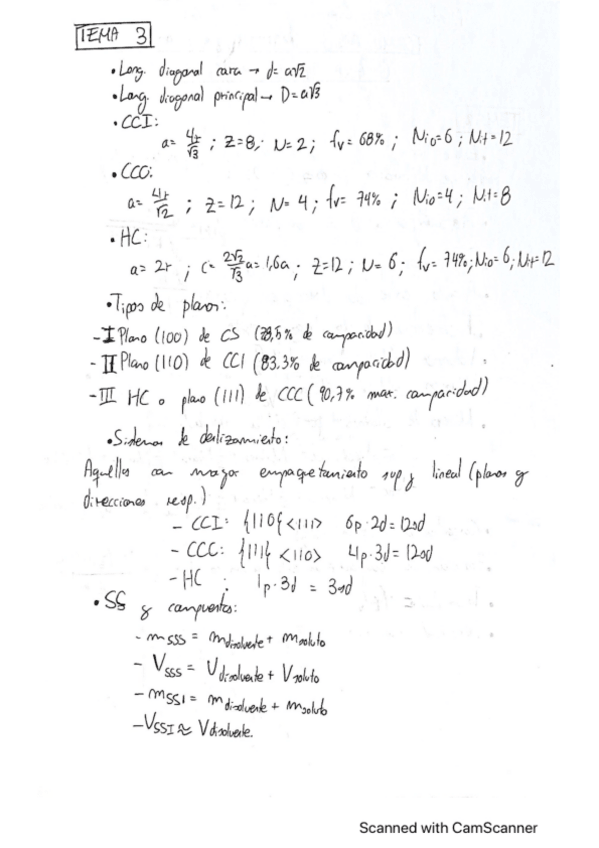 TEMA 3
• Long. diagonal cara → d = a√2
• Long. diagonal principal → D = a√3
• CCI:
a = 4r/√3 ; Z=8; N=2; fv = 68% ; Nio=6 ; Nit=12
• CCC:
a = 4r/√2 ; Z=12; N=4; fv= 74% ; Nio=4; Nit=8
• HC:
a= 2r ; c= 2√2/√3 a = 1,6a ; Z=12 ; N= 6; fv= 74%; Nio=6; Nit=12
• Tipos de planos:
- I Plano (100) de CS (78,5% de compacidad)
- II Plano (110) de CCI (83,3% de compacidad)
- III HC o plano (111) de CCC (90,7% max. compacidad)
• Sistemas de deslizamiento:
Aquellos con mayor empaquetamiento sup y lineal (planos y
direcciones resp.)
- CCI: {110} <111> 6p·2d = 12sd
- CCC: {111} <110> 4p·3d = 12sd
- HC : 1p·3d = 3sd
• SS y compuestos:
- mSSS = mdisolvente + msoluto
- VSSS = Vdisolvente + Vsoluto
- mSSI = mdisolvente + msoluto
- VSSI ≈ Vdisolvente.
Scanned with CamScanner